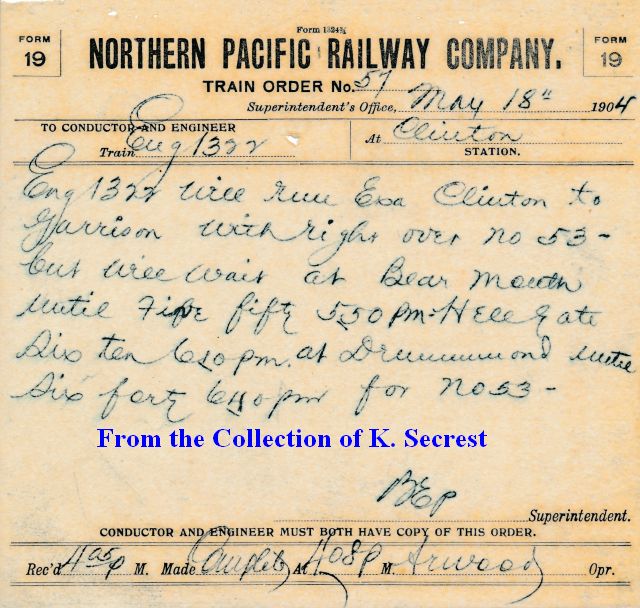 Form 1324¾
FORM 19
NORTHERN PACIFIC RAILWAY COMPANY.
FORM 19
TRAIN ORDER No. 57
Superintendent's Office, May 18" 1904
TO CONDUCTOR AND ENGINEER
Train Eng 1322
At Clinton
STATION.
Eng 1322 will run Exa Clinton to
Garrison with right over no 53 -
but will wait at Bear Mouth
until Five fifty 550 pm - Hell Gate
Six ten 610 pm. at Drummond until
Six forty 640 pm for No 53 -
From the Collection of K. Secrest
BEP
Superintendent.
CONDUCTOR AND ENGINEER MUST BOTH HAVE COPY OF THIS ORDER.
Rec'd 405p M. Made Complete At 408p M. Arwood Opr.